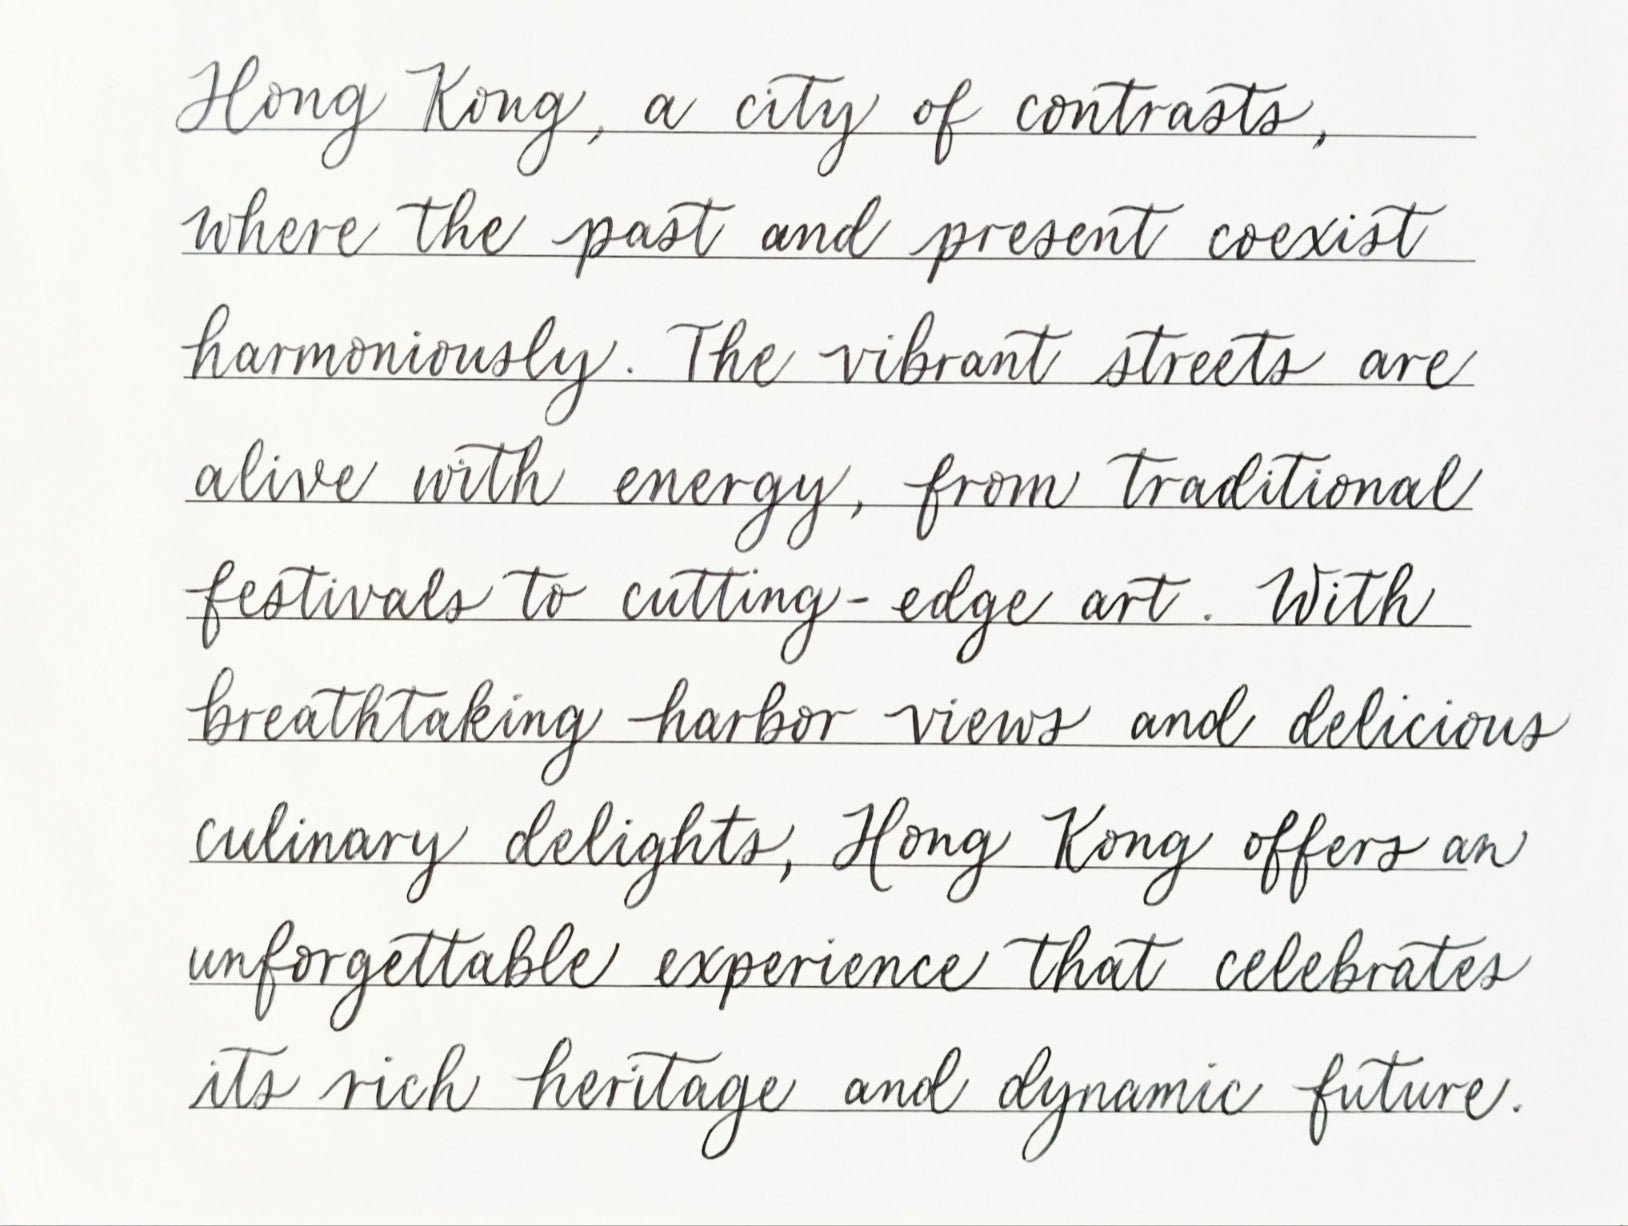 Hong Kong, a city of contrasts,
where the past and present coexist
harmoniously. The vibrant streets are
alive with energy, from traditional
festivals to cutting-edge art. With
breathtaking harbor views and delicious
culinary delights, Hong Kong offers an
unforgettable experience that celebrates
its rich heritage and dynamic future.